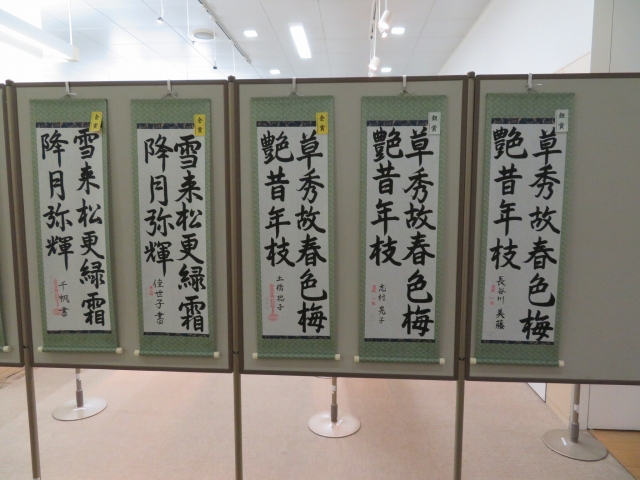 金賞
雪来松更緑霜
降月弥輝
千帆書
金賞
雪来松更緑霜
降月弥輝
佳世子書
金賞
草秀故春色梅
艶昔年枝
土橋
子
銀賞
草秀故春色梅
艶昔年枝
志村
子
銀賞
草秀故春色梅
艶昔年枝
長谷川美藤